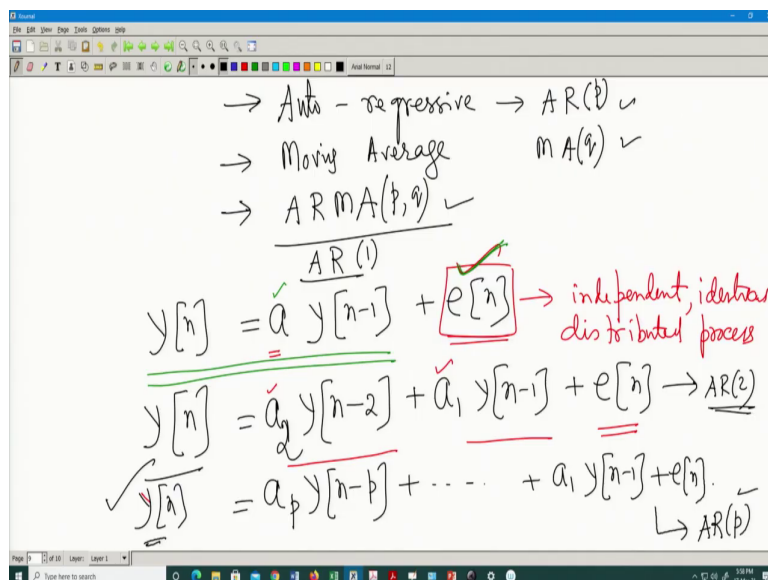 Xournal
File Edit View Page Tools Options Help
Arial Normal 12
→ Auto-regressive → AR(p) ✓
→ Moving Average MA(q) ✓
→ ARMA(p,q) ✓
AR(1)
y[n] = a y[n-1] + e[n] → independent, identical
distributed process
y[n] = a₂ y[n-2] + a₁ y[n-1] + e[n] → AR(2)
y[n] = aₚ y[n-p] + ----- + a₁ y[n-1] + e[n].
↳ AR(p)
Page 9 of 10 Layer: Layer 1
Type here to search
5:58 PM